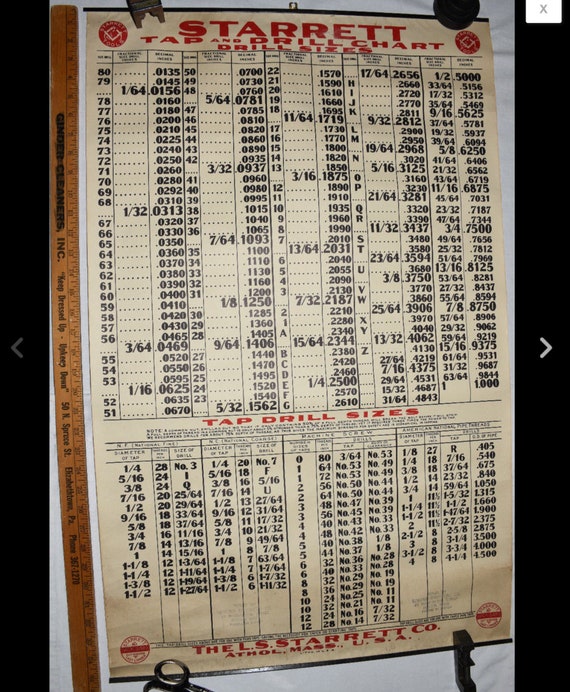 STARRETT
TAP AND DRILL CHART
DRILL SIZES
SIZE DRILL FRACTIONAL SIZE DRILL INCHES DECIMAL INCHES
80 .0135
79 .0145
1/64 .0156
78 .0160
77 .0180
76 .0200
75 .0210
74 .0225
73 .0240
72 .0250
71 .0260
70 .0280
69 .0292
68 .0310
1/32 .0313
67 .0320
66 .0330
65 .0350
64 .0360
63 .0370
62 .0380
61 .0390
60 .0400
59 .0410
58 .0420
57 .0430
56 .0465
3/64 .0469
55 .0520
54 .0550
53 .0595
1/16 .0625
52 .0635
51 .0670
50 .0700
49 .0730
48 .0760
5/64 .0781
47 .0785
46 .0810
45 .0820
44 .0860
43 .0890
42 .0935
3/32 .0937
41 .0960
40 .0980
39 .0995
38 .1015
37 .1040
36 .1065
7/64 .1093
35 .1100
34 .1110
33 .1130
32 .1160
31 .1200
1/8 .1250
30 .1285
29 .1360
28 .1405
9/64 .1406
27 .1440
26 .1470
25 .1495
24 .1520
23 .1540
5/32 .1562
22 .1570
21 .1590
20 .1610
19 .1660
18 .1695
11/64 .1719
17 .1730
16 .1770
15 .1800
14 .1820
13 .1850
3/16 .1875
12 .1890
11 .1910
10 .1935
9 .1960
8 .1990
7 .2010
13/64 .2031
6 .2040
5 .2055
4 .2090
3 .2130
7/32 .2187
2 .2210
1 .2280
A .2340
15/64 .2344
B .2380
C .2420
D .2460
E 1/4 .2500
F .2570
G .2610
17/64 .2656
H .2660
I .2720
J .2770
K .2811
9/32 .2812
L .2900
M .2950
19/64 .2968
N .3020
5/16 .3125
O .3160
P .3230
21/64 .3281
Q .3320
R .3390
11/32 .3437
S .3480
T .3580
23/64 .3594
U .3680
3/8 .3750
V .3770
W .3860
25/64 .3906
X .3970
Y .4040
13/32 .4062
Z .4130
27/64 .4219
7/16 .4375
29/64 .4531
15/32 .4687
31/64 .4843
1/2 .5000
33/64 .5156
17/32 .5312
35/64 .5469
9/16 .5625
37/64 .5781
19/32 .5937
39/64 .6094
5/8 .6250
41/64 .6406
21/32 .6562
43/64 .6719
11/16 .6875
45/64 .7031
23/32 .7187
47/64 .7344
3/4 .7500
49/64 .7656
25/32 .7812
51/64 .7969
13/16 .8125
53/64 .8281
27/32 .8437
55/64 .8594
7/8 .8750
57/64 .8906
29/32 .9062
59/64 .9219
15/16 .9375
61/64 .9531
31/32 .9687
63/64 .9844
1 1.000
TAP DRILL SIZES
N.F. (NATIONAL FINE)
DIAMETER OF TAP SIZE OF DRILL
1/4 28 No. 3
5/16 24 I
3/8 24 Q
7/16 20 25/64
1/2 20 29/64
9/16 18 33/64
5/8 18 37/64
3/4 16 11/16
7/8 14 13/16
1 14 15/16
1-1/8 12 1-3/64
1-1/4 12 1-11/64
1-3/8 12 1-19/64
1-1/2 12 1-27/64
N.C. (NATIONAL COARSE)
DIAMETER OF TAP SIZE OF DRILL
1/4 20 No. 7
5/16 18 F
3/8 16 5/16
7/16 14 U
1/2 13 27/64
9/16 12 31/64
5/8 11 17/32
3/4 10 21/32
7/8 9 49/64
1 8 7/8
1-1/8 7 63/64
1-1/4 7 1-7/64
1-3/8 6 1-7/32
1-1/2 6 1-11/32
MACHINE SCREWS
TAP DRILL
0 80 3/64
1 64 No. 53
1 72 No. 53
2 56 No. 50
2 64 No. 50
3 48 No. 47
3 56 No. 45
4 40 No. 43
4 48 No. 42
5 40 No. 38
5 44 No. 37
6 32 No. 36
6 40 No. 33
8 32 No. 29
8 36 No. 29
10 24 No. 25
10 32 No. 21
12 24 No. 16
12 28 No. 14
AMERICAN NATIONAL PIPE THREADS
DIAMETER OF TAP DRILL O.D. OF PIPE
1/8 27 R .405
1/4 18 7/16 .540
3/8 18 37/64 .675
1/2 14 23/32 .840
3/4 14 59/64 1.050
1 11½ 1-5/32 1.315
1-1/4 11½ 1-1/2 1.660
1-1/2 11½ 1-47/64 1.900
2 11½ 2-7/32 2.375
2-1/2 8 2-5/8 2.875
3 8 3-1/4 3.500
3-1/2 8 3-3/4 4.000
4 8 4-1/4 4.500
THE L.S. STARRETT CO.
ATHOL, MASS., U.S.A.
GINDER CLEANERS, INC.
"Keep Dressed Up - Upkeep Down"
50 N. Spruce St. Elizabethtown, Pa. Phone 367-1270
X